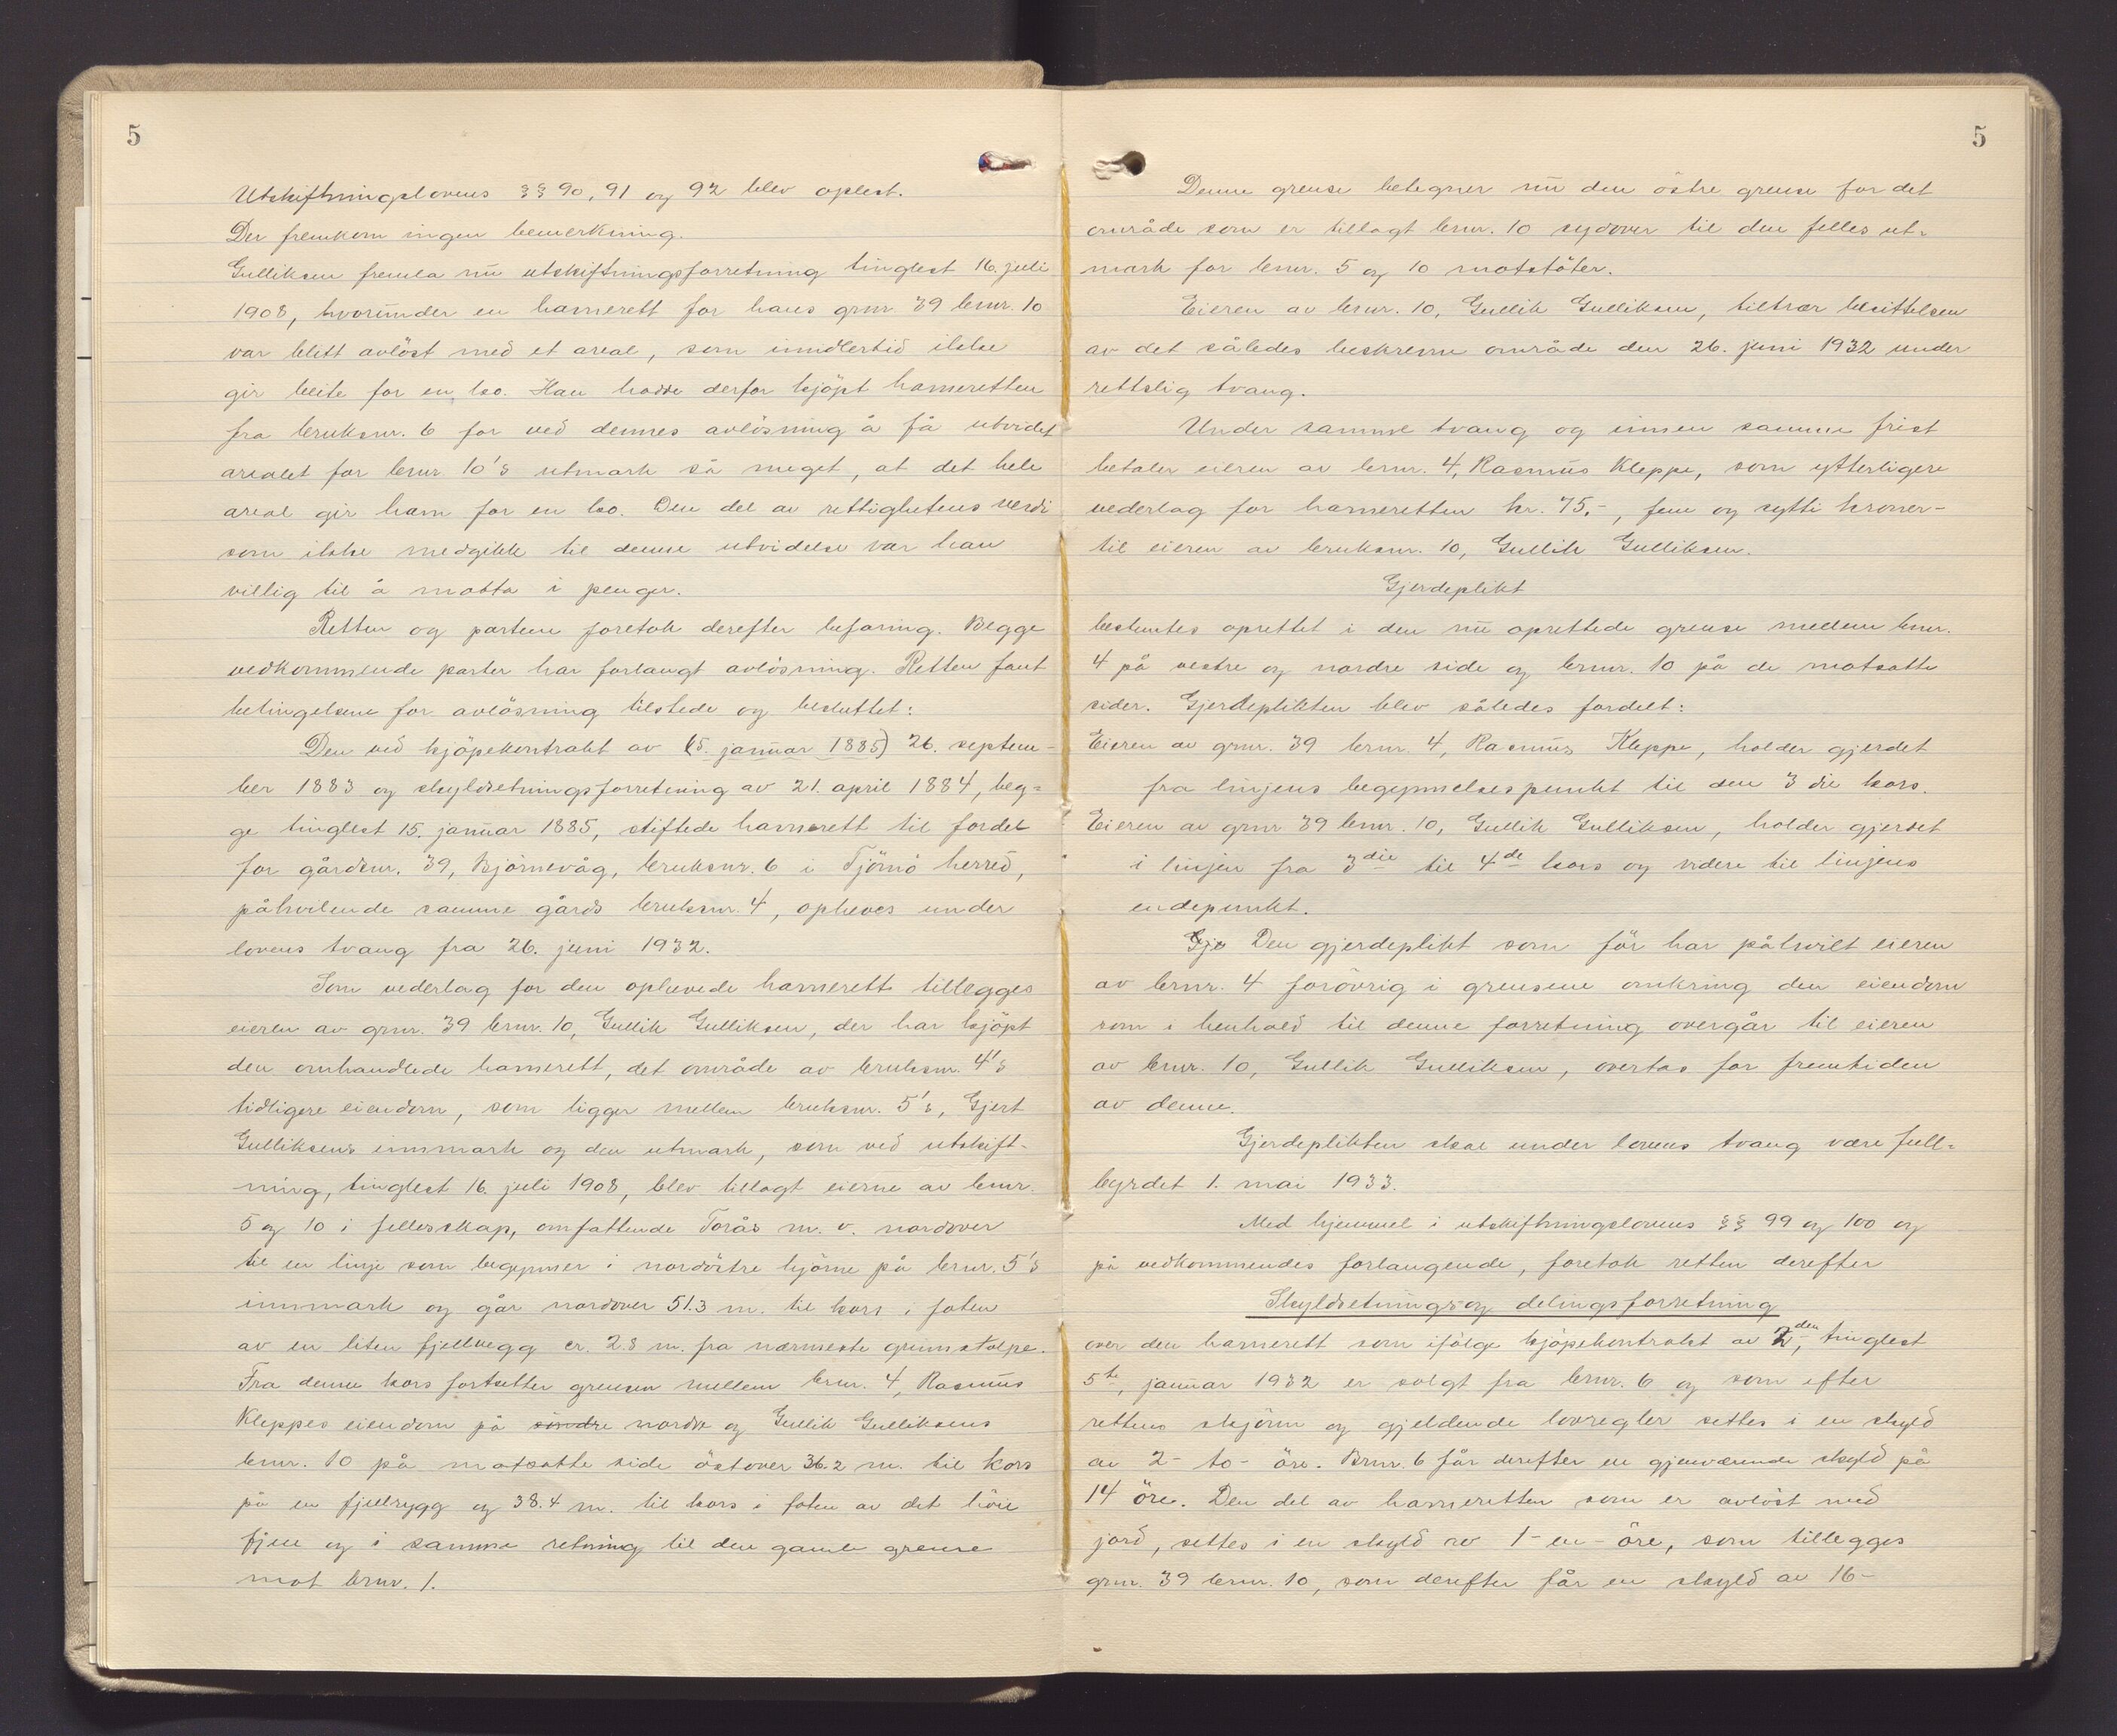 5
Utskiftningslovens §§ 90, 91 og 92 blev oplest.
Der fremkom ingen bemerkning.
Gulliksen fremla nu utskiftningsforretning tinglest 16. juli
1908, hvorunder en hamnerett for hans grnr 39 brnr. 10
var blitt avlöst med et areal, som imidlertid ikke
gir beite for en ko. Han hadde derfor kjöpt hamneretten
fra bruksnr. 6 for ved dennes avlösning å få utvidet
arealet for brnr 10's utmark så meget, at det hele
areal gir ham for en ko. Den del av rettighetens verdi
som ikke medgikk til denne utvidelse var han
villig til å motta i penger.
Retten og partene foretok derefter befaring. Begge
vedkommende parter har forlangt avlösning. Retten fant
betingelsene for avlösning tilstede og besluttet:
Den ved kjöpekontrakt av (5. januar 1885) 26. septem-
ber 1883 og skyldsetningsforretning av 21. april 1884, beg-
ge tinglest 15. januar 1885, stiftede hamnerett til fordel
for gårdsnr. 39, Björnevåg, bruksnr. 6 i Tjömö herred,
påhvilende samme gårds bruksnr. 4, opheves under
lovens tvang fra 26. juni 1932.
Som vederlag for den ophevede hamnerett tillegges
eieren av grnr. 39 brnr. 10, Gullik Gulliksen, der har kjöpt
den omhandlede hamnerett, det område av bruksnr. 4's
tidligere eiendom, som ligger mellem bruksnr. 5's, Gjert
Gulliksens innmark og den utmark, som ved utskift-
ning, tinglest 16. juli 1908, blev tillagt eierne av brnr.
5 og 10 i fellesskap, omfattende Torås m. v. nordover
til en linje som begynner i nordöstre hjörne på brnr. 5's
innmark og går nordover 51.3 m. til kors i foten
av en liten fjellvegg cr. 2.8 m. fra nærmeste grinnstolpe.
Fra denne kors fortsetter grensen mellem brnr. 4, Rasmus
Kleppes eiendom på söndre nordre og Gullik Gulliksens
brnr. 10 på motsatte side östover 36.2 m. til kors
på en fjellrygg og 38.4 m. til kors i foten av det höie
fjell og i samme retning til den gamle grense
mot brnr. 1.
5
Denne grense betegner nu den östre grense for det
område som er tillagt brnr. 10 sydover til den felles ut-
mark for brnr. 5 og 10 motstöter.
Eieren av brnr. 10, Gullik Gulliksen, tiltrær besittelsen
av det således beskrevne område den 26. juni 1932 under
rettslig tvang.
Under samme tvang og innen samme frist
betaler eieren av brnr. 4, Rasmus Kleppe, som ytterligere
vederlag for hamneretten kr. 75.-, fem og sytti kroner-
til eieren av bruksnr. 10, Gullik Gulliksen.
Gjerdeplikt
besluttes oprettet i den nu oprettede grense mellem brnr.
4 på vestre og nordre side og brnr. 10 på de motsatte
sider. Gjerdeplikten blev således fordelt:
Eieren av grnr. 39 brnr. 4, Rasmus Kleppe, holder gjerdet
fra linjens begynnelsespunkt til den 3 die kors.
Eieren av grnr 39 brnr. 10, Gullik Gulliksen, holder gjerdet
i linjen fra 3die til 4de kors og videre til linjens
endepunkt.
Gje Den gjerdeplikt som för har påhvilt eieren
av brnr. 4 forövrig i grensene omkring den eiendom
som i henhold til denne forretning overgår til eieren
av brnr. 10, Gullik Gulliksen, overtas for fremtiden
av denne.
Gjerdeplikten skal under lovens tvang være full-
byrdet 1. mai 1933.
Med hjemmel i utskiftningslovens §§ 99 og 100 og
på vedkommendes forlangende, foretok retten derefter
Skyldsetnings og delingsforretning
over den hamnerett som ifölge kjöpekontrakt av 2den, tinglest
5te, januar 1932 er solgt fra brnr. 6 og som efter
rettens skjönn og gjeldende lovregler settes i en skyld
av 2- to- öre. Brnr. 6 får derefter en gjenværende skyld på
14 öre. Den del av hamneretten som er avlöst med
jord, settes i en skyld av 1- en- öre, som tillegges
grnr. 39 brnr. 10, som derefter får en skyld av 16-